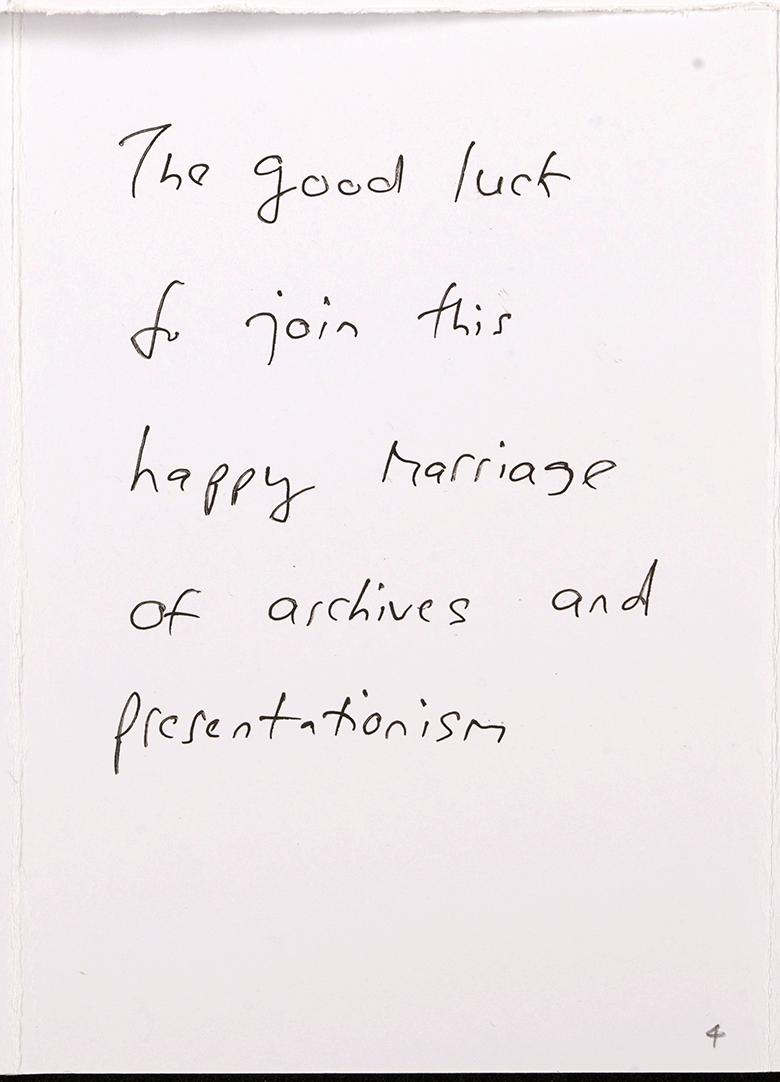 The good luck
to join this
happy marriage
of archives and
presentationism
4